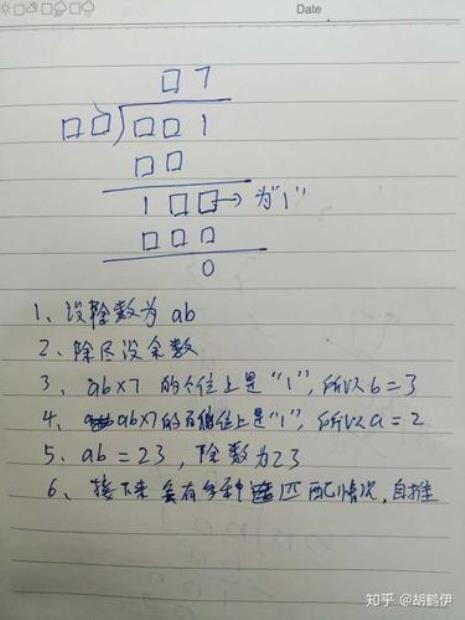 Date
□ 7
□□)□□ 1
□□
1 □□→为"1"
□□□
0
1、设除数为 ab
2、除尽没余数
3、ab×7 的个位上是"1",所以b=3
4、ab×7的百位上是"1",所以a=2
5、ab=23,除数为23
6、接下来会有多种匹配情况,自推
知乎 @胡鹤伊